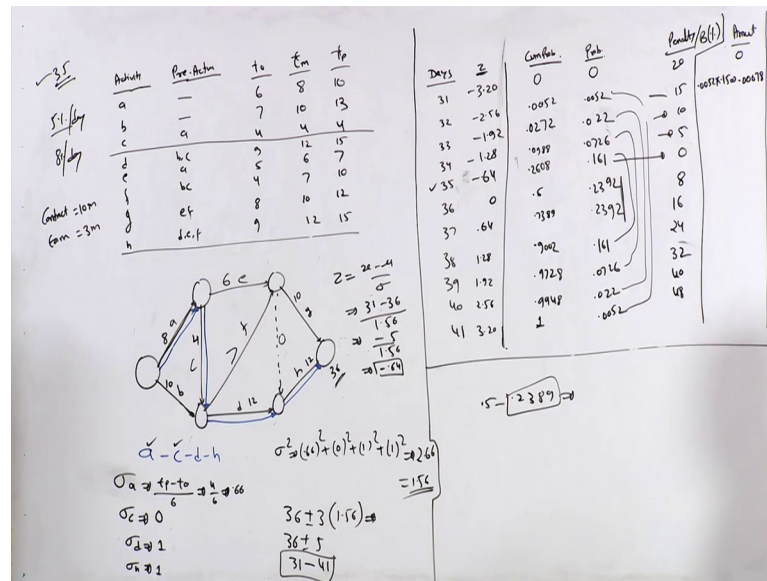 35
5.1./day
8./day
Contract = 10m
Earn = 3m
Activiti Pre.Actvn to tm tp
a — 6 8 10
b — 7 10 13
c a 4 4 4
d b.c 9 12 15
e a 5 6 7
f bc 4 7 10
g ef 8 10 12
h d.e.f 9 12 15
6 e
8 a
4
c
7 f
10 g
0
10 b
d 12
h 12
36
a - c - d - h
σa ⇒ tp-to / 6 ⇒ 4/6 ⇒ .66
σc ⇒ 0
σd ⇒ 1
σh ⇒ 1
Z = x - μ / σ
⇒ 31-36 / 1.56
⇒ -5 / 1.56
⇒ -.64
σ² ⇒ (.66)² + (0)² + (1)² + (1)² ⇒ 2.66
= 1.56
36 ± 3 (1.56) ⇒
36 ± 5
31 - 41
Days Z Cum Prob. Prob. Penalty/B(1.) Amout
0 0 20 0
31 -3.20 .0052 .052 15 .0052x.150=.00078
32 -2.56 .0272 .022 10
33 -1.92 .0988 .0726 5
34 -1.28 .2608 .161 0
35 -.64 .5 .2392 8
36 0 .7389 .2392 16
37 .64 .9002 .161 24
38 1.28 .9728 .0726 32
39 1.92 .9948 .022 40
40 2.56 1 .0052 48
41 3.20
.5 - .2389 ⇒